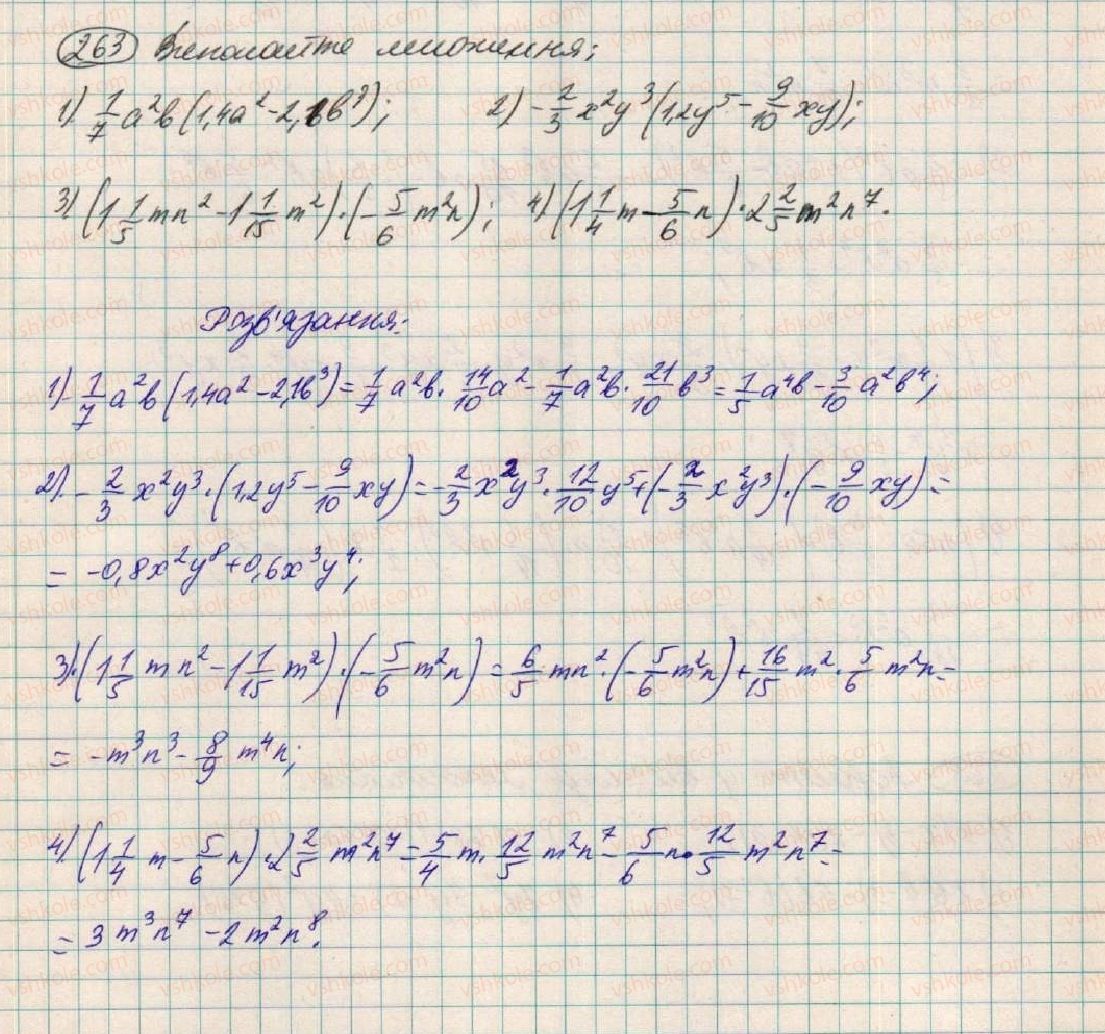 263 Виконайте множення:
1) 1/7 a²b (1,4a² - 2,1b³); 2) -2/3 x²y³ (1,2y⁵ - 9/10 xy);
3) (1 1/5 mn² - 1 1/15 m²)·(-5/6 m²n); 4) (1 1/4 m - 5/6 n)·2 2/5 m²n⁷.
Розв'язання:
1) 1/7 a²b (1,4a² - 2,1b³) = 1/7 a²b · 14/10 a² - 1/7 a²b · 21/10 b³ = 1/5 a⁴b - 3/10 a²b⁴;
2) -2/3 x²y³·(1,2y⁵ - 9/10 xy) = -2/3 x²y³ · 12/10 y⁵ + (-2/3 x²y³)·(-9/10 xy) =
= -0,8x²y⁸ + 0,6x³y⁴;
3) (1 1/5 mn² - 1 1/15 m²)·(-5/6 m²n) = 6/5 mn²·(-5/6 m²n) + 16/15 m² · 5/6 m²n =
= -m³n³ - 8/9 m⁴n;
4) (1 1/4 m - 5/6 n)·2 2/5 m²n⁷ = 5/4 m · 12/5 m²n⁷ - 5/6 n · 12/5 m²n⁷ =
= 3m³n⁷ - 2m²n⁸.